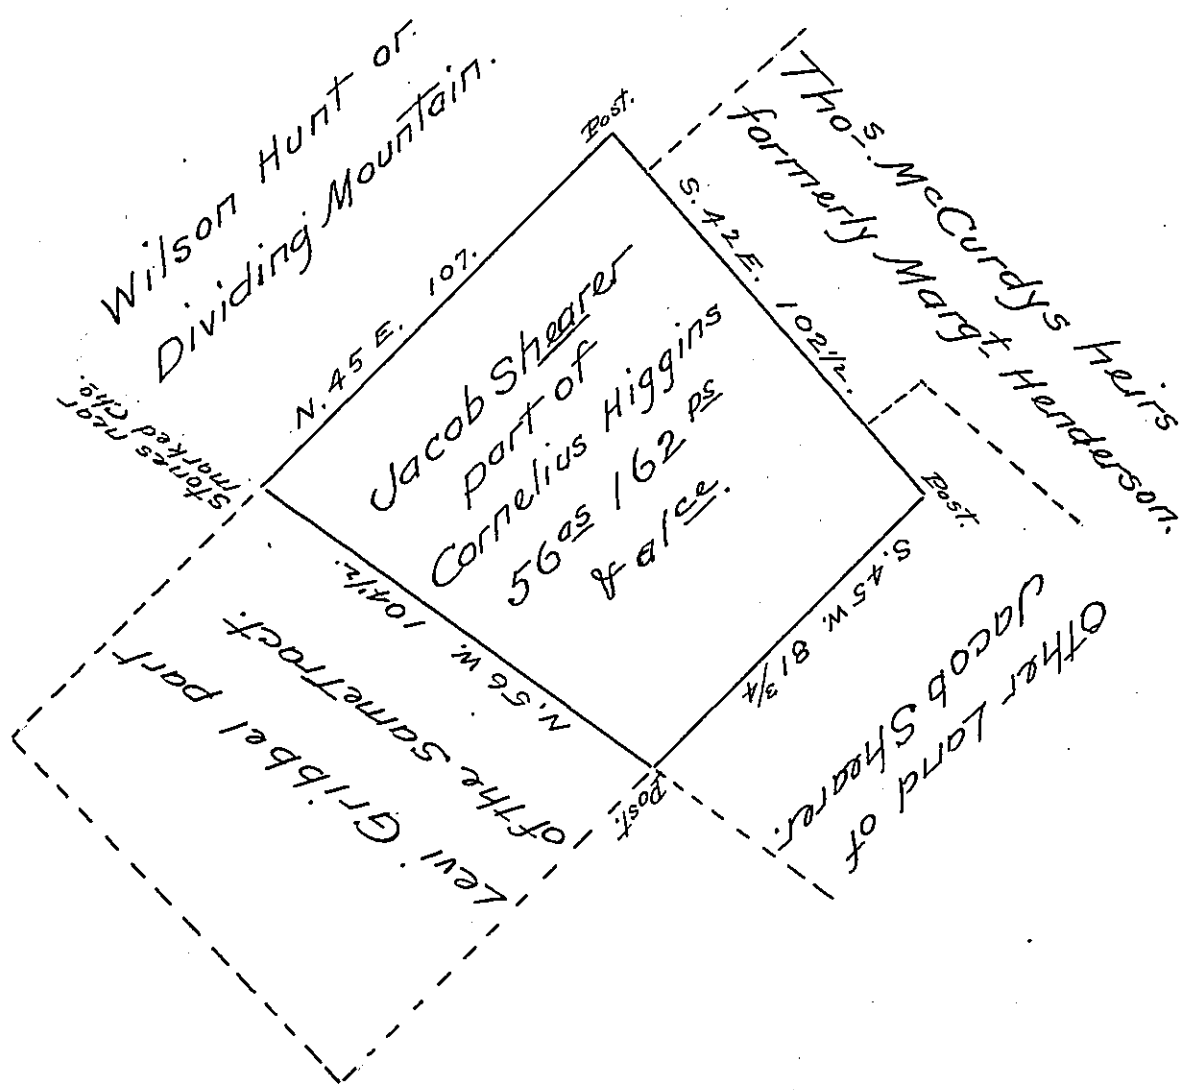 Wilson Hunt or.
Dividing Mountain.
Post.
Thos. McCurdys heirs
formerly Margt Henderson.
N. 45 E. 107.
S. 42 E. 102½.
stones near
marked Cho.
Jacob Shearer
part of
Cornelius Higgins
56as 162 ps
& alce.
Post.
S. 45 W. 81¾
N. 56 W. 104½.
Post.
Other Land of
Jacob Shearer.
Levi Gribbel part
of the Same Tract.